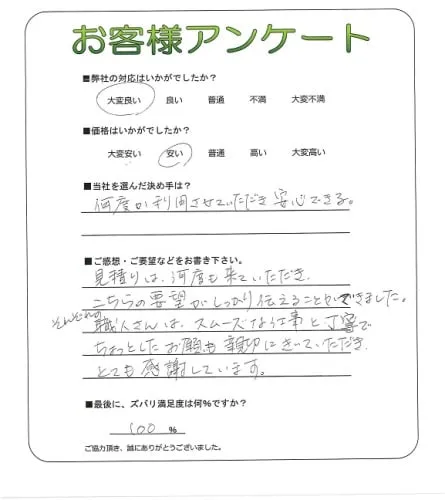 お客様アンケート
■弊社の対応はいかがでしたか?
大変良い 良い 普通 不満 大変不満
■価格はいかがでしたか?
大変安い 安い 普通 高い 大変高い
■当社を選んだ決め手は?
何度か利用させていただき安心できる。
■ご感想・ご要望などをお書き下さい。
見積りは、何度も来ていただき、
こちらの要望がしっかり伝えることができました。
それぞれの
職人さんは、スムーズな仕事と丁寧で
ちょっとしたお願も親切にきいていただき、
とても感謝しています。
■最後に、ズバリ満足度は何%ですか?
100 %
ご協力頂き、誠にありがとうございました。